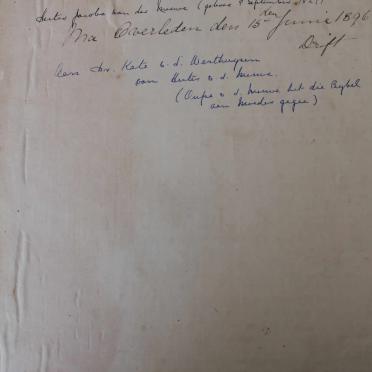 Jacoba van der Merwe (gebore 4 September
Ma Overleden den 15den Junie 1896
Drift
Aan Mr. Kate v.d. Westhuizen
van Hertes v.d. Merwe.
(Oupa v.d. Merwe het die Bybel
aan Moeder gegee)